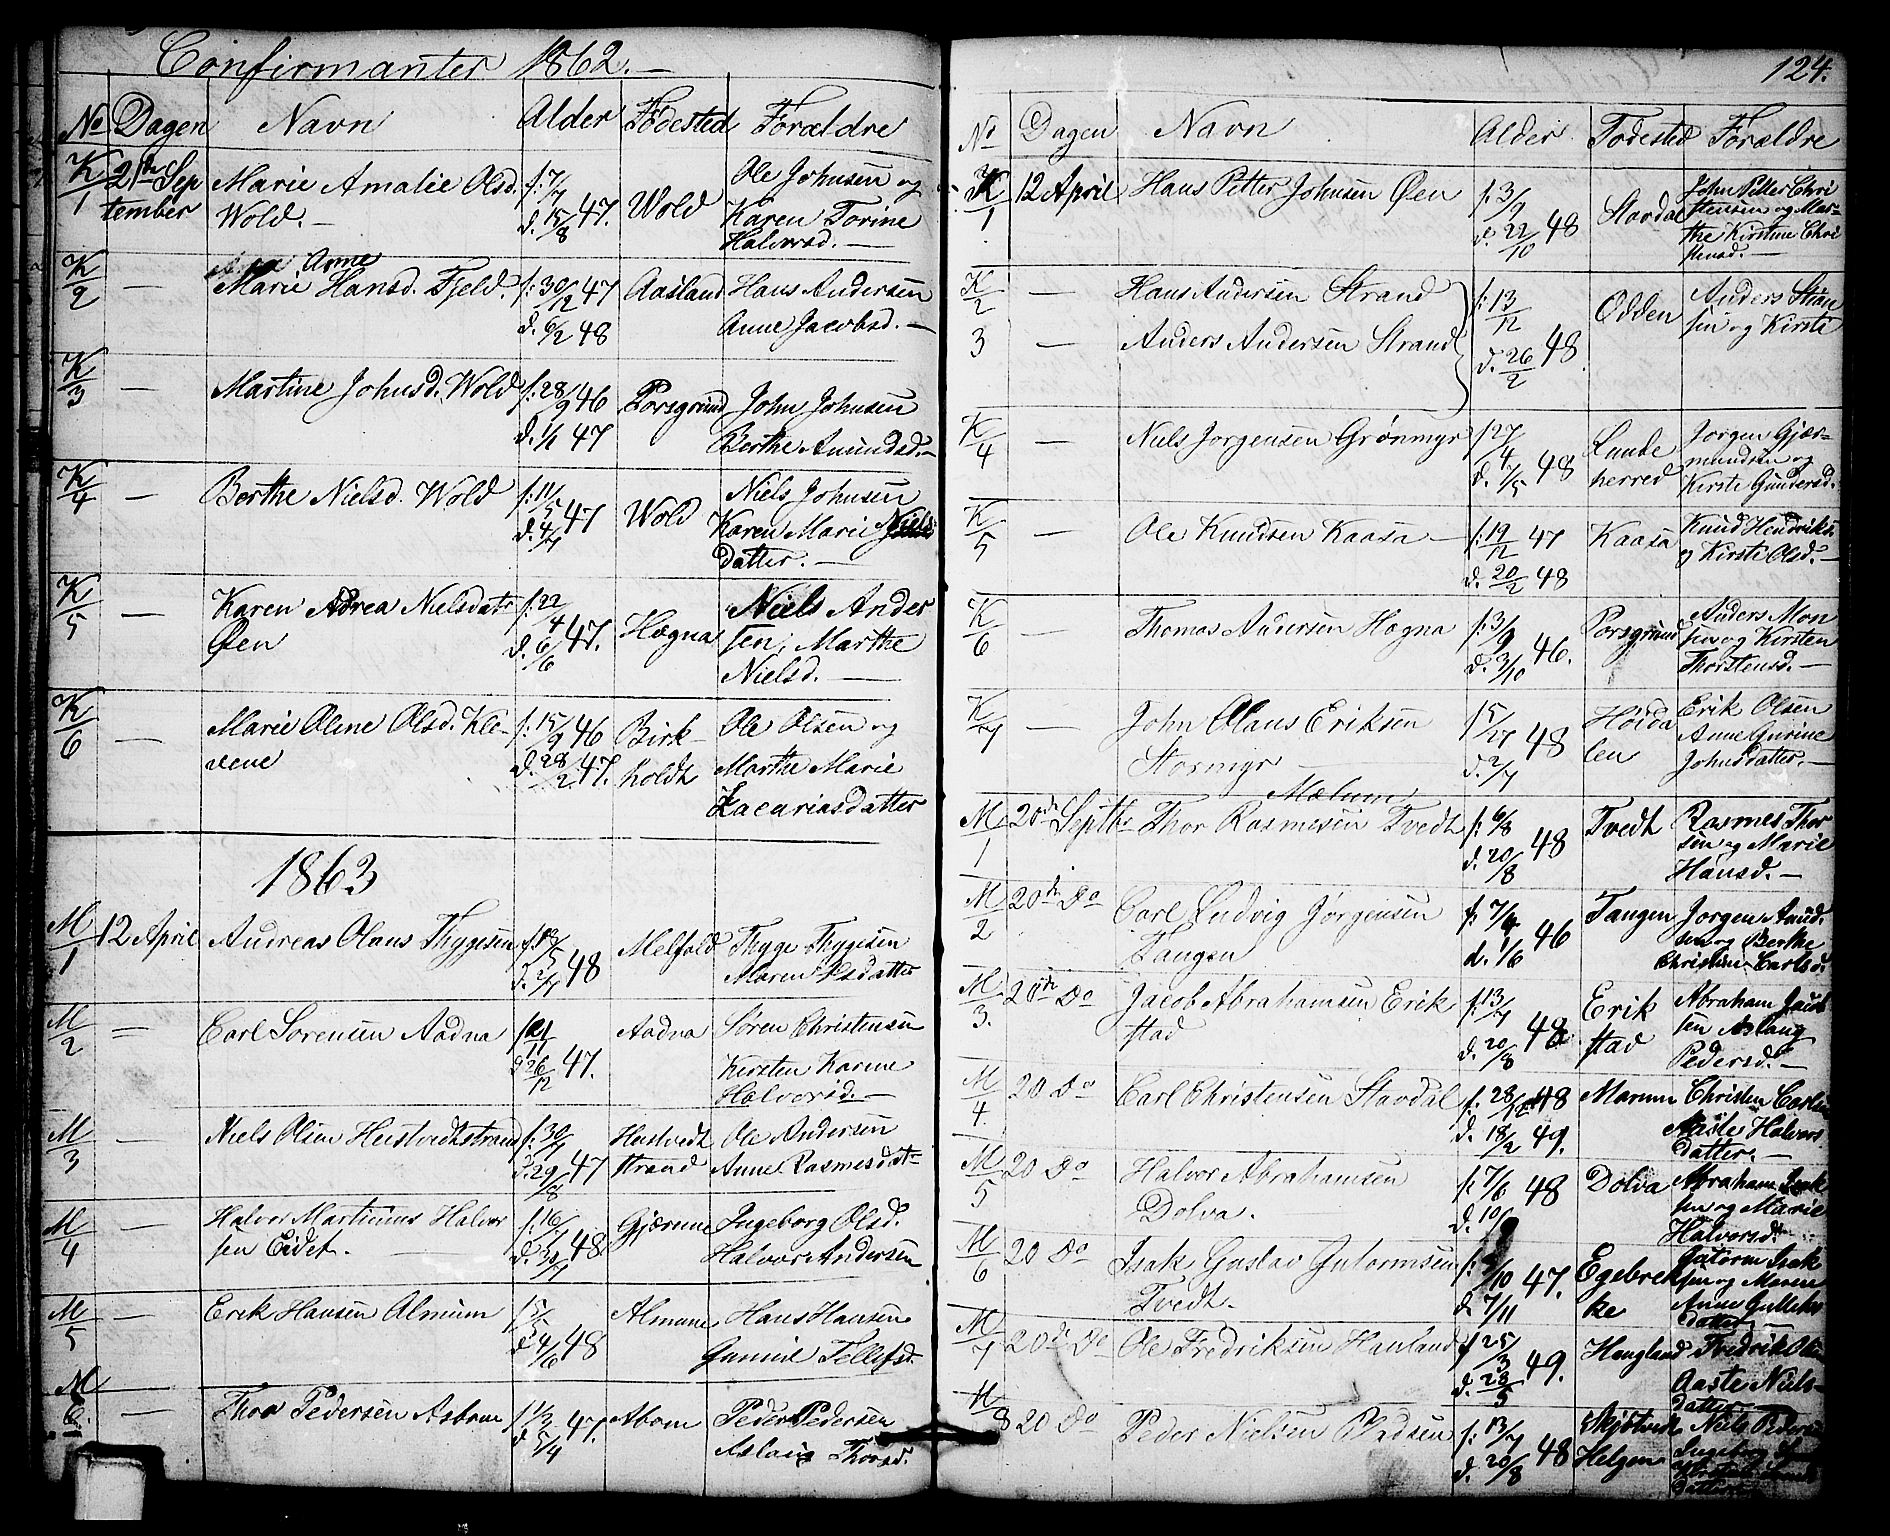 Confirmanter 1862.
No Dagen Navn Alder Fødested Forældre
K/1 21de September Marie Amalie Olsd. Wold. f: 7/7 d. 15/8 47. Wold Ole Johnsen og Karen Torine Halvorsd.
K/2 — Anne Marie Hansd. Fjeld. f: 30/12 47 d. 6/2 48 Aasland Hans Andersen Anne Jacobsd.
K/3 — Martine Johnsd. Wold f: 28/9 46 d. 1/1 47 Porsgrund John Johnsen Berthe Amundsd.
K/4 — Berthe Nielsd. Wold f: 11/5 d. 4/7 47 Wold Niels Johnsen Karen Marie Niels datter.
K/5 — Karen Adrea Nielsdatr Øen f: 22/4 d. 6/6 47. Høgna Niels Ander sen, Marthe Nielsd.
K/6 — Marie Oline Olsd. Kle- vene f: 15/9 46 d. 28/2 47. Birk- holdt Ole Olsen og Marthe Marie Zacariasdatter
1863
M/1 12 April Andreas Olaus Thygesen f. 12/5 d. 2/7 48 Melfald Thyge Thygesen Maren Olsdatter
M/2 — Carl Sorensen Aadna f 21/11 d 26/12 47. Aadna Søren Christensen Kirsten Karine Halvorsd.
M/3 — Niels Olsen Heistvedtstrand f. 30/7 d. 29/8 47 Heistvedt strand Ole Andersen Anne Rasmesdat-
M/4 — Halvor Martinius Halvor sen Eidet. f. 16/7 d. 30/7 48 Gjærume Ingeborg Olsd. Halvor Andersen
M/5 — Erik Hansen Almum f 5/5 d 4/6 48 Almune Hans Hansen Gunnil Tellefsd.
M/6. — Thor Pedersen Asbom f 1/3 d 5/4 47. Abom Peder Pedersen Aslaug Thorsd.
124.
No Dagen Navn Alder Fødested Forældre
K/1 12 April Hans Petter Johnsen Øen f: 3/9 d. 22/10 48 Stavdal John Petter Chri stensen og Mar- the Kirstine Chri stensd.
K/2 — Hans Andersen Strand
3 — Anders Andersen Strand f: 13/12 d. 26/2 48. Odden Anders sen og Kirsti
K/4 — Niels Jorgensen Grønmyr f 27/4 d. 1/5 48 Lunde herred Jorgen Gjær- mundsen og Kirsti Gundersd.
K/5 — Ole Knudsen Kaasa f: 19/12 47 d. 20/2 48 Kaasa Knud Hendriks. og Kirsti Olsd.
K/6 — Thomas Andersen Høgna f: 3/9 d. 3/10 46. Porsgrund Anders Mon sen og Kirsten Thorstensd.
K/7 — John Olaus Eriksen Stormyr f 5/ d. 2/7 48 Høida len Erik Olsen Anne Gurine Johnsdatter.
Mælum
M/1 20de Septbr Thor Rasmesen Tvedt f: 6/8 d. 20/8 48 Tvedt Rasmes Thor sen og Marie Hansd.
M/2 20de Do Carl Ludvig Jørgensen Tangen f: 7/4 d. 1/6 46 Tangen Jorgen Amund. sen og Berthe Christine Carlsd.
M/3. 20de Do Jacob Abrahamsen Erik stad f: 13/7 d. 20/8 48 Erik stad Abraham Jacob sen Aslaug Pedersd.
M/4. 20 Do Carl Christensen Stavdal f. 28/12 48 d. 18/2 49. Marum Christen Carlsen Halvors datter.
M/5 20 Do Halvor Abrahamsen Dolva. f: 7/6 d. 10/ 48 Dolva Abraham Isak sen og Marie Halvorsd.
M/6 20 Do Isak Gustav Gutormsen Tvedt. f: /10 d. 7/11 47. Egebrek ke Gutorm Isak sen og Maren Anne Gulleks datter
M/7 20de Do Ole Fredriksen Haukland f 25/3 d. 28/5 49. Haugland Fredrik Olsen Aaste Niels- datter
M/8 20 Do Peder Nielsen Pladsen f: 13/7 d. 20/8 48 Helgen Niels Peders Ingeborg datter